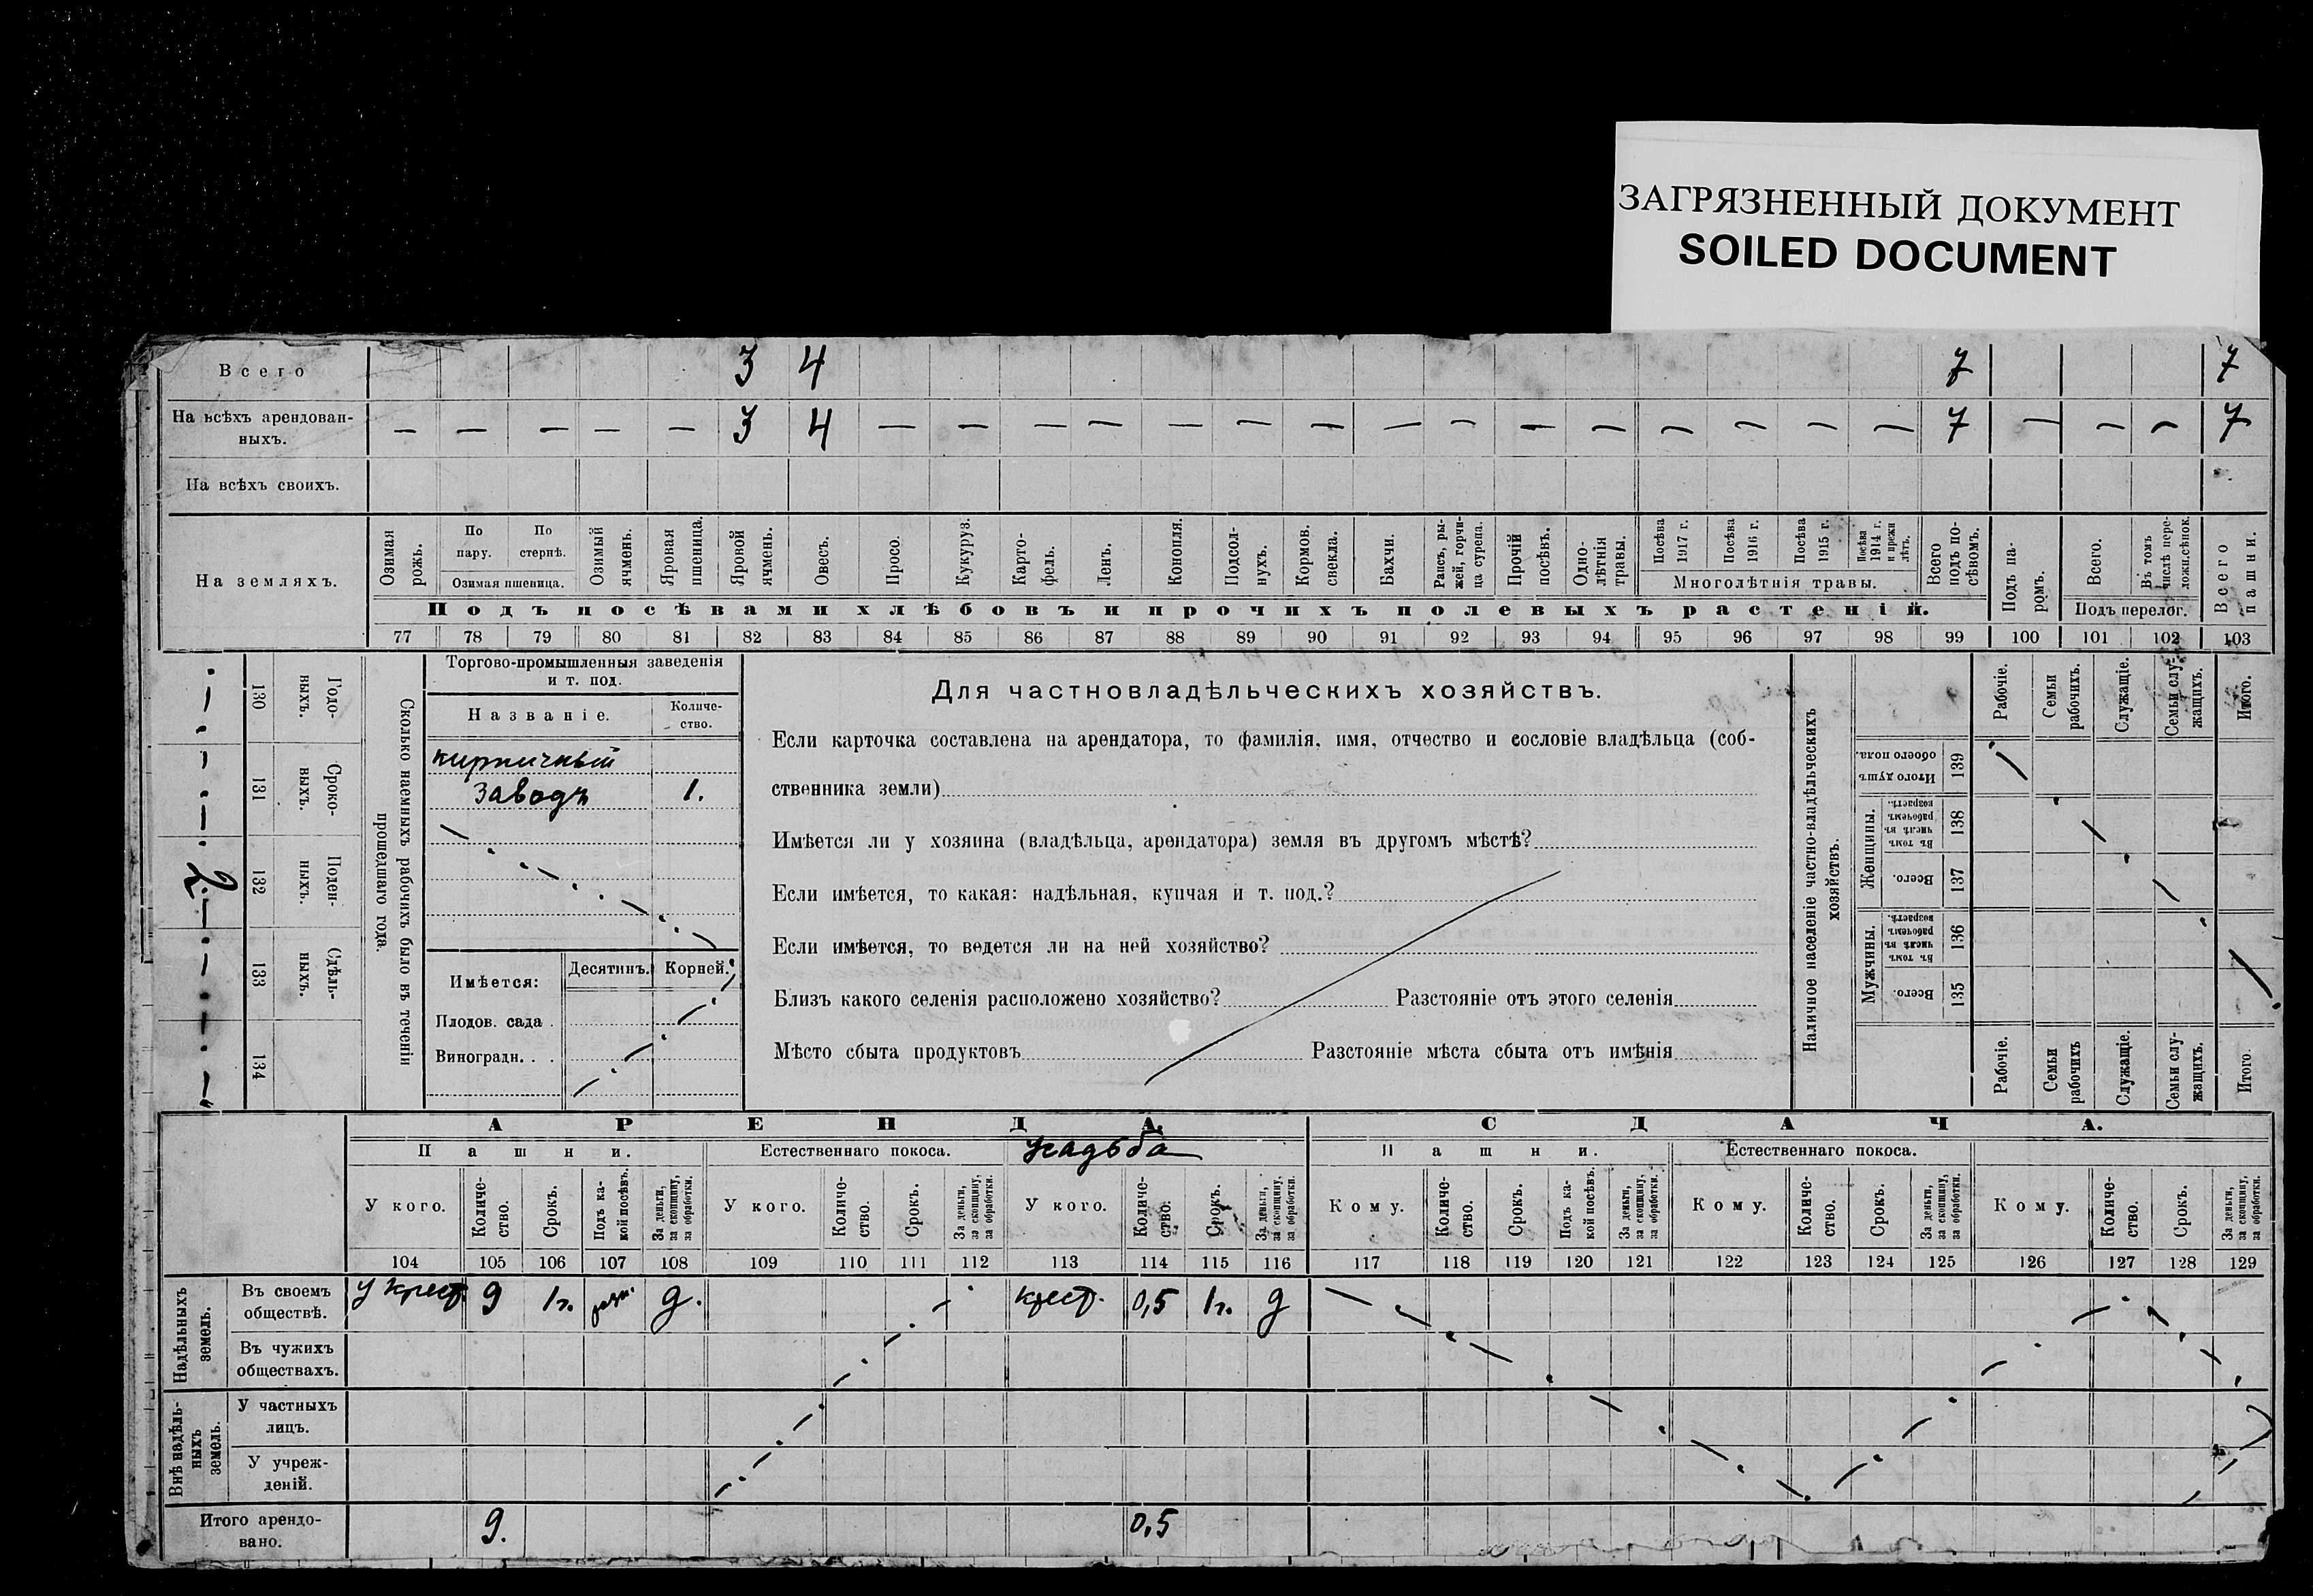 ЗАГРЯЗНЕННЫЙ ДОКУМЕНТ
SOILED DOCUMENT
Всего 3 4 7 7
На всѣхъ арендован-
ныхъ. — — — — — 3 4 — — — — — — — — — — — — — — — 7 — — — 7
На всѣхъ своихъ.
На земляхъ.
Озимая рожь.
По пару.
По стернѣ.
Озимая пшеница.
Озимый ячмень.
Яровая пшеница.
Яровой ячмень.
Овесъ.
Просо.
Кукуруз.
Карто-
фель.
Ленъ.
Конопля.
Подсол-
нухъ.
Кормов.
свекла.
Бахчи.
Рапсъ, ры-
жей, горчи-
ца сурепа.
Прочій
посѣвъ.
Одно-
лѣтнія
травы.
Посѣва
1917 г.
Посѣва
1916 г.
Посѣва
1915 г.
Посѣва
1914 г.
и прежн
лѣтъ.
Многолѣтнія травы.
Всего
подъ по-
сѣвомъ.
Подъ па-
ромъ.
Всего.
Въ томъ
числѣ пере-
ложн.сѣнок.
Подъ перелог.
Всего
пашни.
Подъ посѣвами хлѣбовъ и прочихъ полевыхъ растеній.
77 78 79 80 81 82 83 84 85 86 87 88 89 90 91 92 93 94 95 96 97 98 99 100 101 102 103
130 Годо-
ныхъ.
131 Сроко-
выхъ.
2 132 Поден-
ныхъ.
133 Сдѣль-
ныхъ.
134
Сколько наемныхъ рабочихъ было въ теченіи
прошедшаго года.
Торгово-промышленныя заведенія
и т. под.
Названіе.
Количе-
ство.
кирпичный
заводъ 1.
Имѣется: Десятинъ. Корней.
Плодов. сада .
Виноградн. . .
Для частновладѣльческихъ хозяйствъ.
Если карточка составлена на арендатора, то фамилія, имя, отчество и сословіе владѣльца (соб-
ственника земли)
Имѣется ли у хозяина (владѣльца, арендатора) земля въ другомъ мѣстѣ?
Если имѣется, то какая: надѣльная, купчая и т. под.?
Если имѣется, то ведется ли на ней хозяйство?
Близъ какого селенія расположено хозяйство? Разстояніе отъ этого селенія
Мѣсто сбыта продуктовъ Разстояніе мѣста сбыта отъ имѣнія
Наличное населеніе частно-владѣльческихъ
хозяйствъ.
Рабочіе.
Семьи
рабочихъ.
Служащіе.
Семьи слу-
жащихъ.
Итого.
Итого душъ
обоего пола.
139
Женщины.
Въ томъ
числѣ въ
рабочемъ
возрастѣ.
138
Всего.
137
Мужчины.
Въ томъ
числѣ въ
рабочемъ
возрастѣ.
136
Всего.
135
Рабочіе.
Семьи
рабочихъ
Служащіе.
Семьи слу-
жащихъ.
Итого.
АРЕНДА. СДАЧА.
Пашни. Естественнаго покоса. Усадьба Пашни. Естественнаго покоса.
У кого.
Количе-
ство.
Срокъ.
Подъ ка-
кой посѣвъ.
За деньги,
за скопщину,
за обработки.
У кого.
Количе-
ство.
Срокъ.
За деньги,
за скопщину,
за обработки.
У кого.
Количе-
ство.
Срокъ.
За деньги,
за скопщину,
за обработки.
Кому.
Количе-
ство.
Срокъ.
Подъ ка-
кой посѣвъ.
За деньги,
за скопщину,
за обработки.
Кому.
Количе-
ство.
Срокъ.
За деньги,
за скопщину,
за обработки.
Кому.
Количе-
ство.
Срокъ.
За деньги,
за скопщину,
за обработки.
104 105 106 107 108 109 110 111 112 113 114 115 116 117 118 119 120 121 122 123 124 125 126 127 128 129
Надѣльныхъ
земель.
Въ своемъ
обществѣ. У крест. 9 1г. д. крест. 0,5 1г. д
Въ чужихъ
обществахъ.
Внѣ надѣль-
ныхъ
земель.
У частныхъ
лицъ.
У учреж-
деній.
Итого арендо-
вано. 9. 0,5